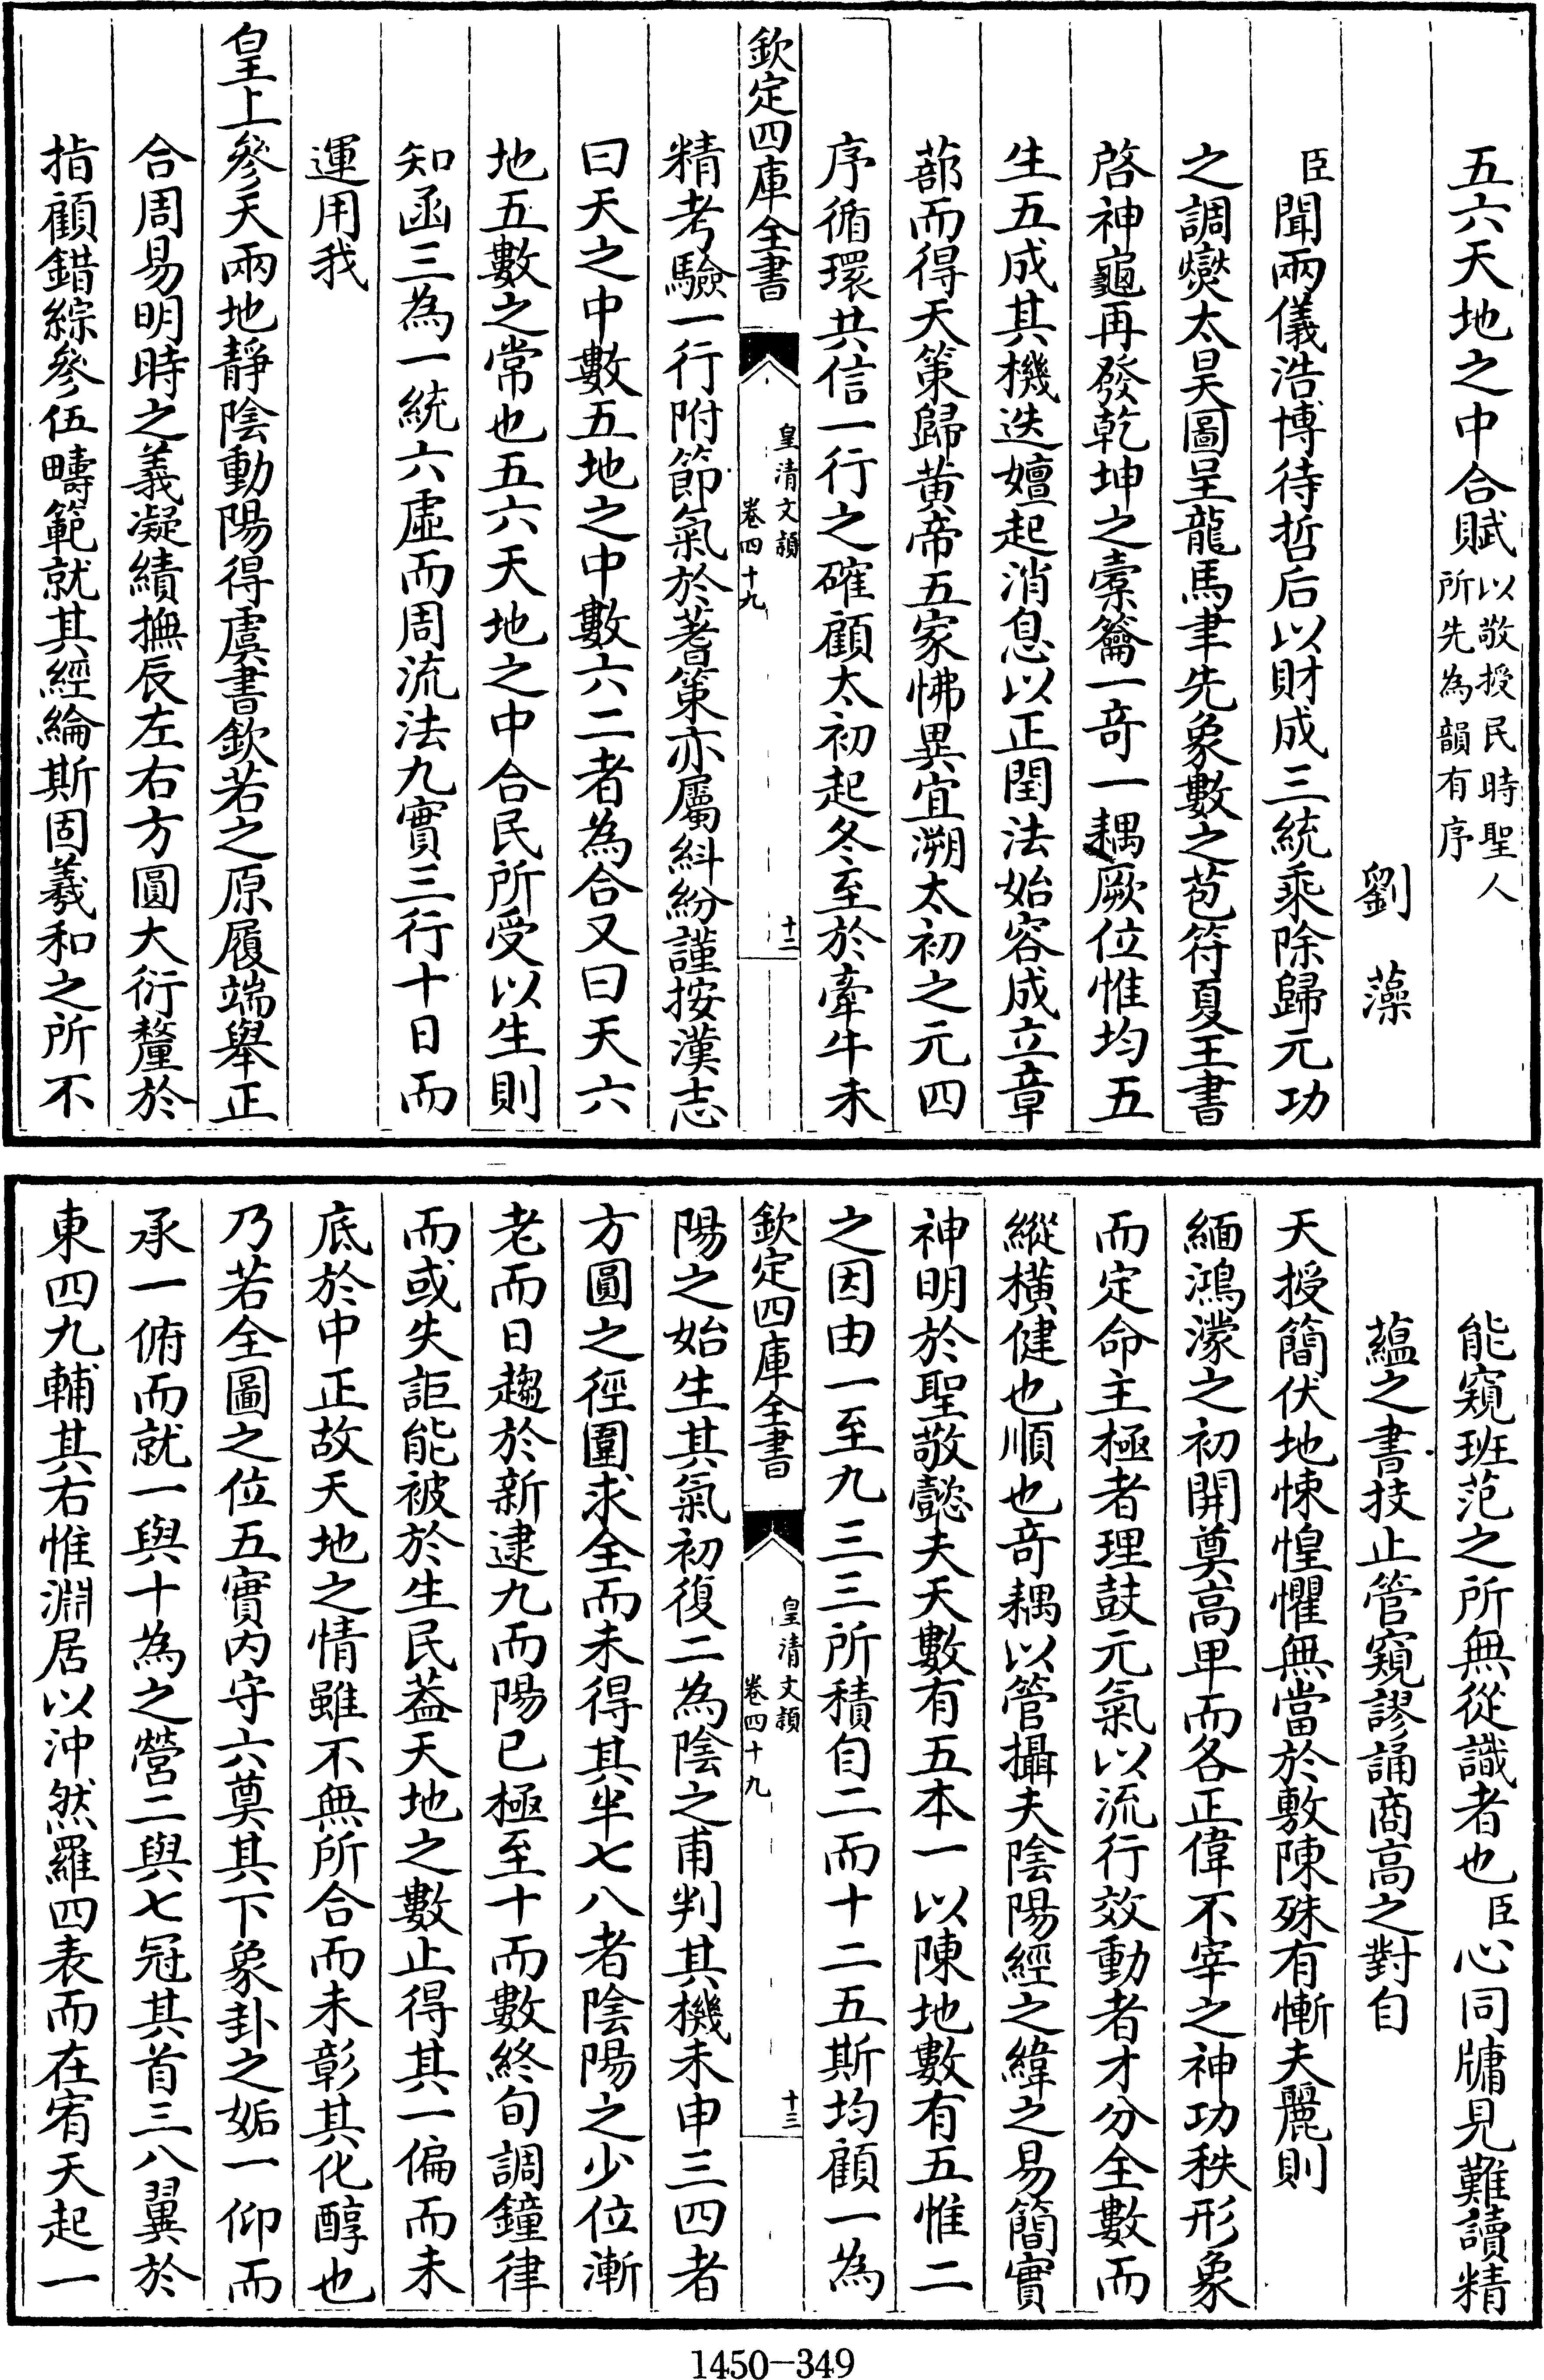 五六天地之中合賦以敬授民時聖人所先為韻有序
劉藻
臣聞兩儀浩博待哲后以財成三統乘除歸元功
之調爕太昊圖呈龍馬聿先象數之苞符夏王書
啓神龜再發乾坤之橐籥一竒一耦厥位惟均五
生五成其機迭嬗起消息以正閏法始容成立章
蔀而得天策歸黄帝五家怫異宜溯太初之元四
序循環共信一行之確顧太初起冬至於牽牛未
欽定四庫全書
皇清文頴
卷四十九
十二
精考驗一行附節氣於蓍策亦屬紏紛謹按漢志
曰天之中數五地之中數六二者為合又曰天六
地五數之常也五六天地之中合民所受以生則
知函三為一統六虛而周流法九實三行十日而
運用我
皇上參天兩地靜陰動陽得虞書欽若之原履端舉正
合周易明時之義凝績撫辰左右方圓大衍釐於
指顧錯綜參伍疇範就其經綸斯固羲和之所不
能窺班范之所無從識者也臣心同牖見難讀精
蘊之書技止管窺謬誦商高之對自
天授簡伏地悚惶懼無當於敷陳殊有慚夫麗則
緬鴻濛之初開奠高卑而各正偉不宰之神功秩形象
而定命主極者理鼓元氣以流行效動者才分全數而
縱橫健也順也竒耦以管攝夫陰陽經之緯之易簡實
神明於聖敬懿夫天數有五本一以陳地數有五惟二
之因由一至九三三所積自二而十二五斯均顧一為
欽定四庫全書
皇清文頴
卷四十九
十三
陽之始生其氣初復二為陰之甫判其機未申三四者
方圓之徑圍求全而未得其半七八者陰陽之少位漸
老而日趨於新逮九而陽已極至十而數終旬調鐘律
而或失詎能被於生民葢天地之數止得其一偏而未
底於中正故天地之情雖不無所合而未彰其化醇也
乃若全圖之位五實内守六奠其下象卦之姤一仰而
承一俯而就一與十為之營二與七冠其首三八翼於
東四九輔其右惟淵居以沖然羅四表而在宥天起一
1450-349